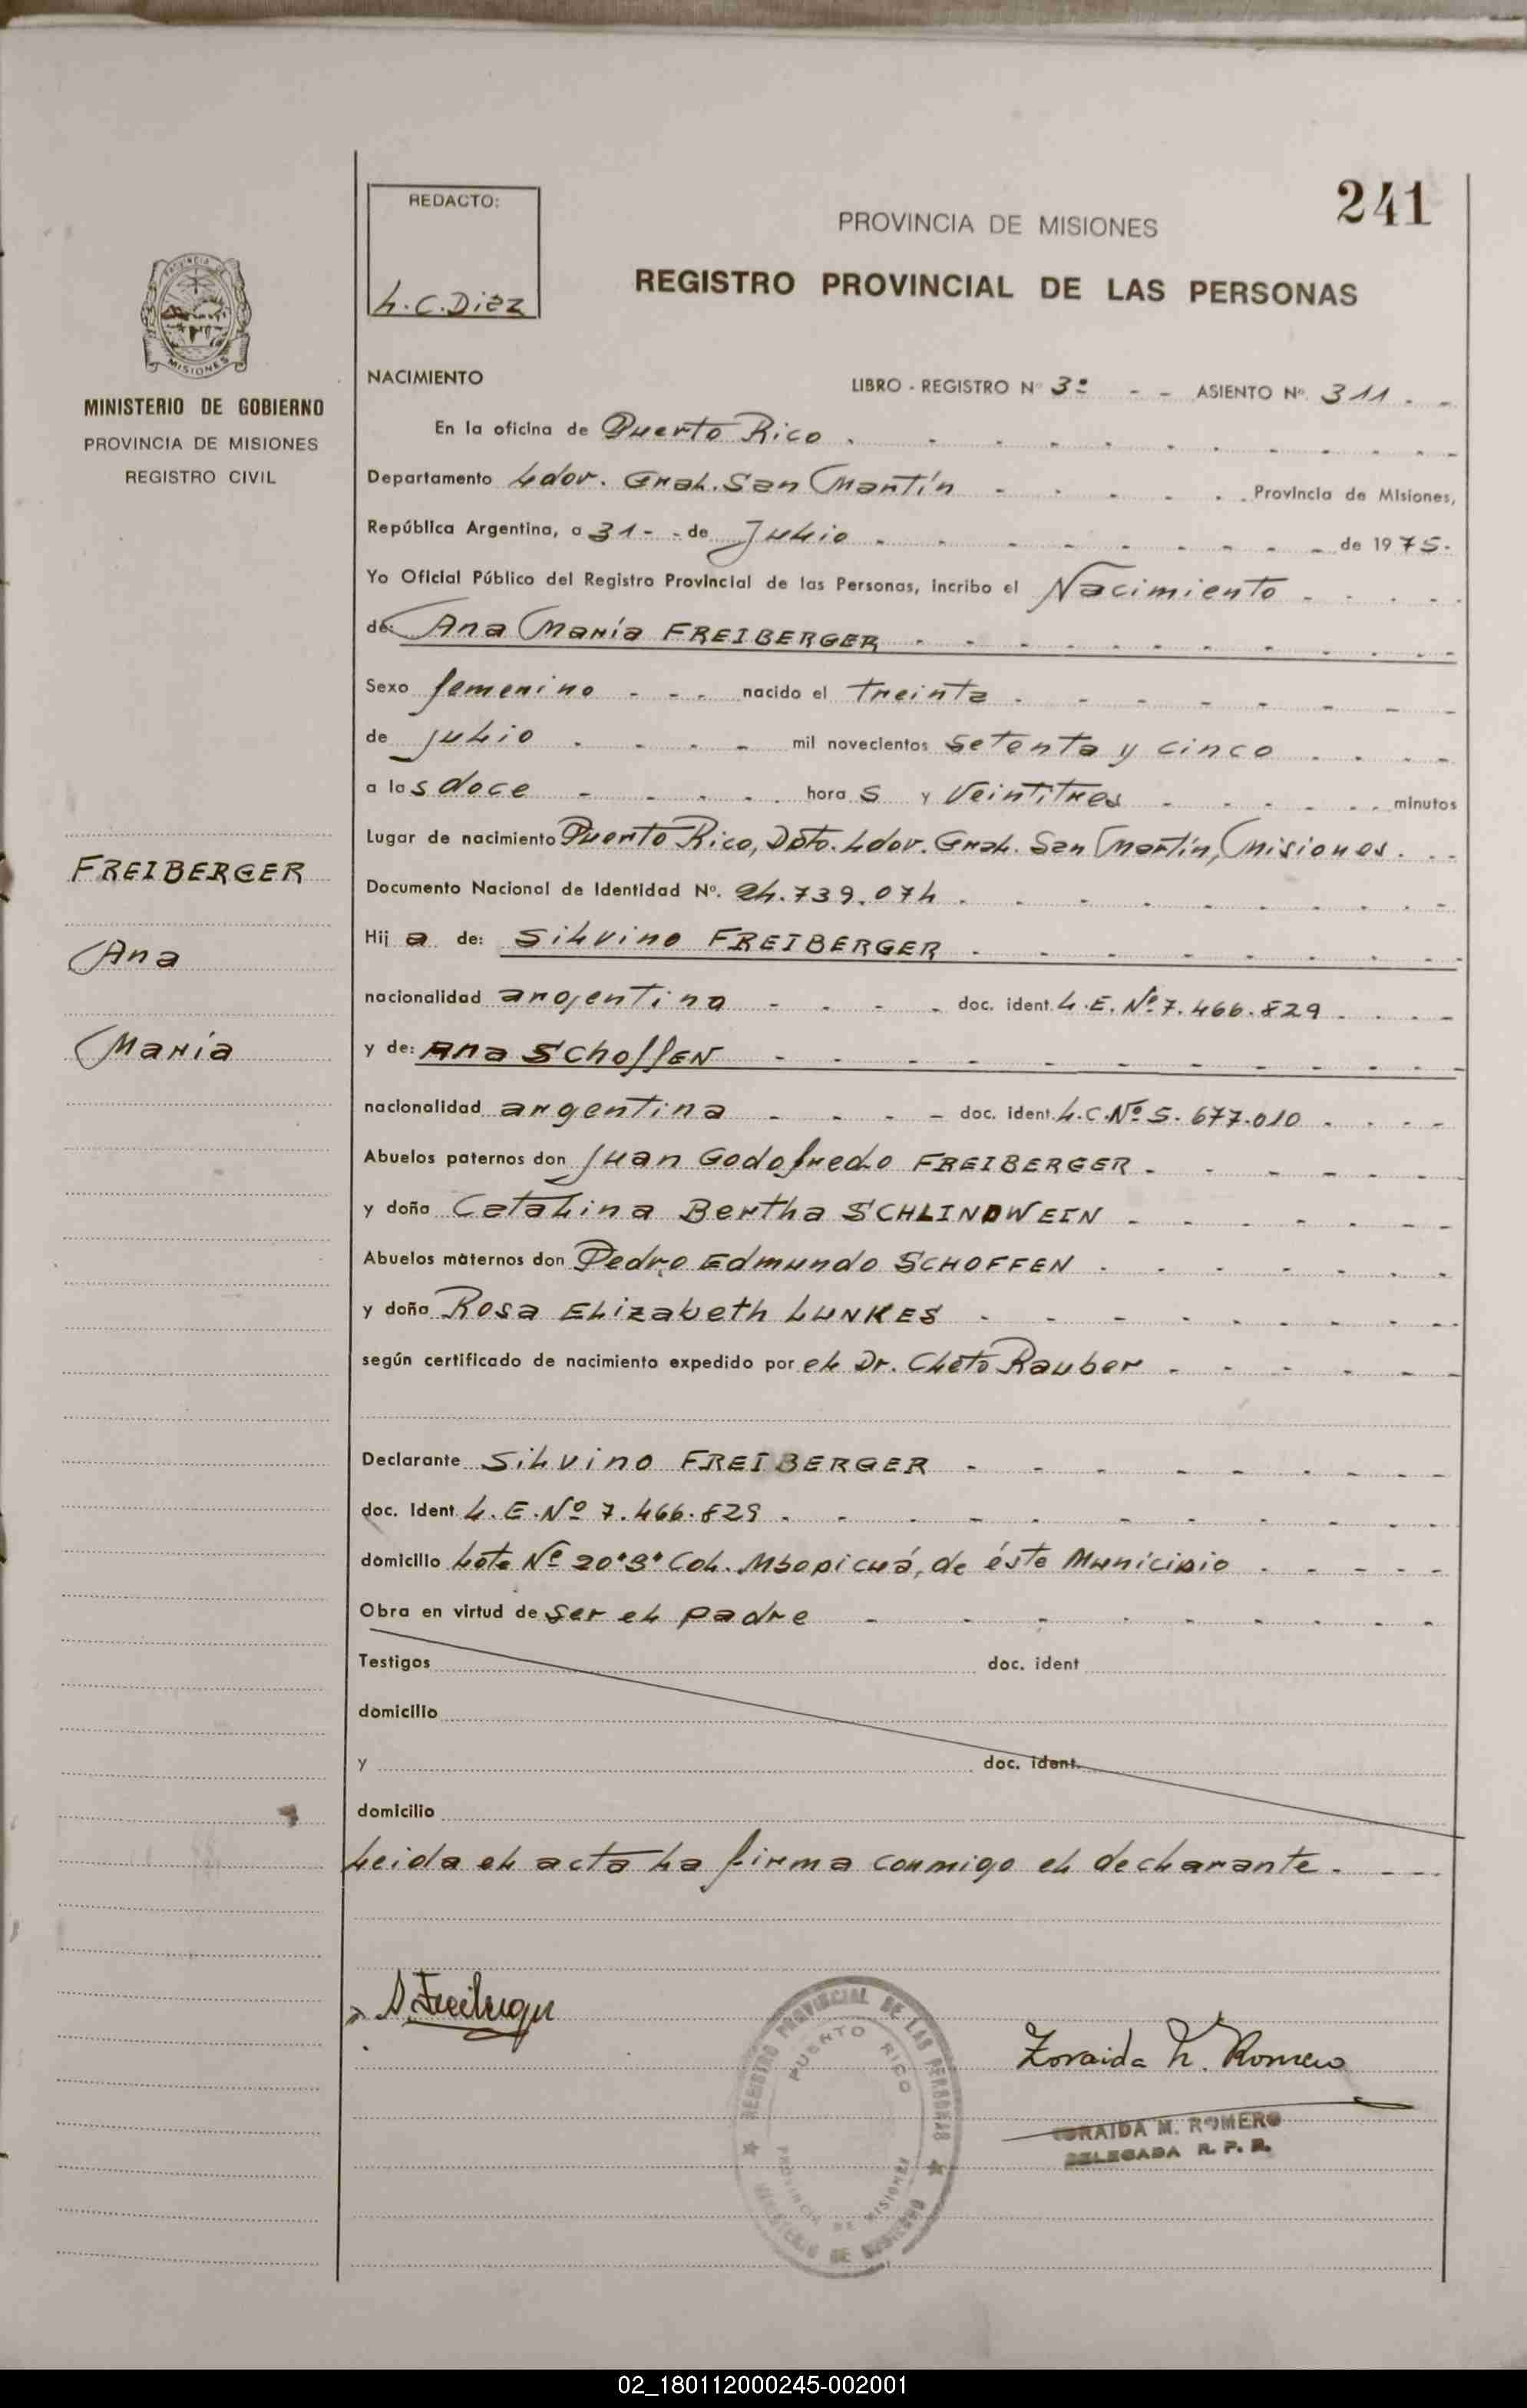 241
REDACTO:
L.C.Diez
PROVINCIA DE MISIONES
REGISTRO PROVINCIAL DE LAS PERSONAS
PROVINCIA DE
MISIONES
MINISTERIO DE GOBIERNO
PROVINCIA DE MISIONES
REGISTRO CIVIL
FREIBERGER
Ana
María
NACIMIENTO LIBRO - REGISTRO Nº 3º - - ASIENTO Nº. 311. -
En la oficina de Puerto Rico.
Departamento Ldor. Gral. San Martín - Provincia de Misiones,
República Argentina, a 31 - - de Julio - de 1975.
Yo Oficial Público del Registro Provincial de las Personas, incribo el Nacimiento
de: Ana María FREIBERGER
Sexo femenino - - - nacido el treinta
de julio - mil novecientos setenta y cinco
a las doce - horas y veintitres - minutos
Lugar de nacimiento Puerto Rico, Dpto. Ldor. Gral. San Martín, Misiones.
Documento Nacional de Identidad Nº. 24.739.074.
Hija de: Silvino FREIBERGER
nacionalidad argentina - doc. ident. L.E. Nº 7.466.829
y de: Ana SchoffEN
nacionalidad argentina - doc. ident. L.C. Nº 5.677.010
Abuelos paternos don Juan Godofredo FREIBERGER
y doña Catalina Bertha SCHLINDWEIN
Abuelos maternos don Pedro Edmundo SCHOFFEN
y doña Rosa Elizabeth LUNKES
según certificado de nacimiento expedido por el Dr. Cleto Rauber
Declarante Silvino FREIBERGER
doc. Ident L.E. Nº 7.466.829
domicilio Lote Nº 20 Col. Mbopicuá, de éste Municipio
Obra en virtud de ser el padre
Testigos doc. ident
domicilio
y doc. ident.
domicilio
Leida el acta la firma conmigo el declarante.
S. Freiberger
REGISTRO PROVINCIAL DE LAS PERSONAS
PUERTO RICO
PROVINCIA DE MISIONES
MINISTERIO DE GOBIERNO
Zoraida M. Romero
ZORAIDA M. ROMERO
DELEGADA R. P. P.
02_180112000245-002001